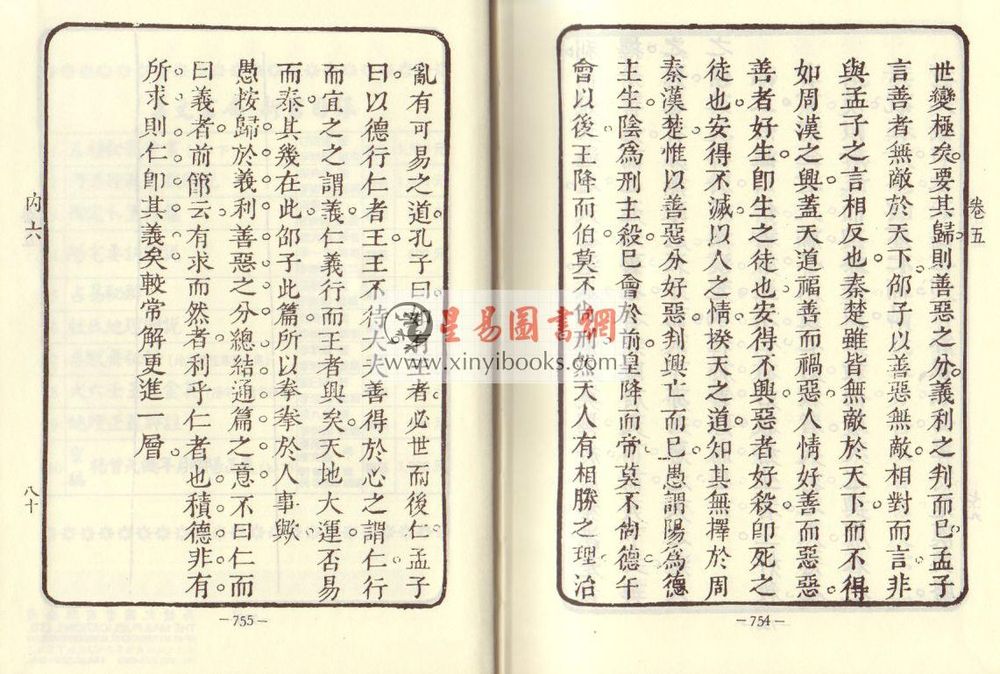 卷五
世變極矣要其歸則善惡之分義利之判而已孟子
言善者無敵於天下邵子以善惡無敵相對而言非
與孟子之言相反也秦楚雖皆無敵於天下而不得
如周漢之興蓋天道福善而禍惡人情好善而惡惡
善者好生卽生之徒也安得不興惡者好殺卽死之
徒也安得不滅以人之情揆天之道知其無擇於周
秦漢楚惟以善惡分好惡判興亡而已愚謂陽爲德
主生陰爲刑主殺巳會於前皇降而帝莫不尙德午
會以後王降而伯莫不尙刑然天人有相勝之理治
—754—
亂有可易之道孔子曰 者必世而後仁孟子
曰以德行仁者王王不待大夫善得於心之謂仁行
而宜之之謂義仁義行而王者興矣天地大運否易
而泰其幾在此邵子此篇所以拳拳於人事歟
愚按歸於義利善惡之分總結通篇之意不曰仁而
曰義者前節云有求而然者利乎仁者也積德非有
所求則仁卽其義矣較常解更進一層
內六
八十
—755—
星易圖書網
www.xinyibooks.com